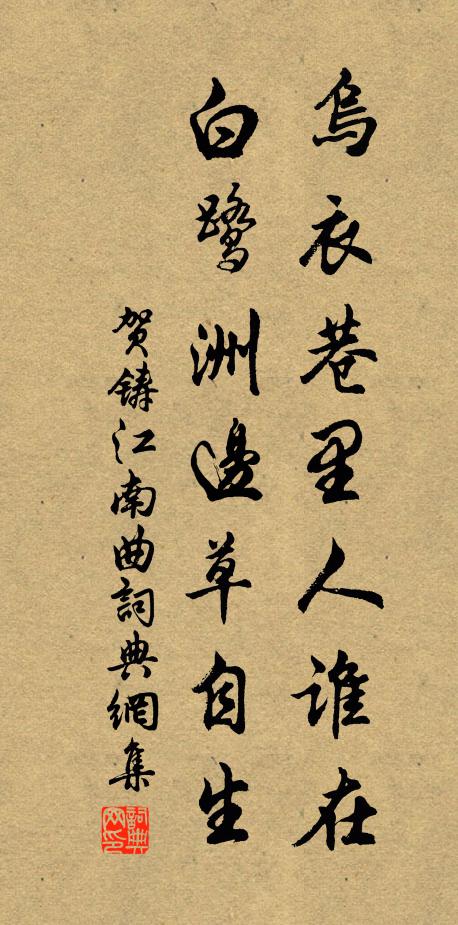 烏衣巷里人誰在
白鷺洲邊草自生
贺鑄江南曲詞典網集
詞典
网印